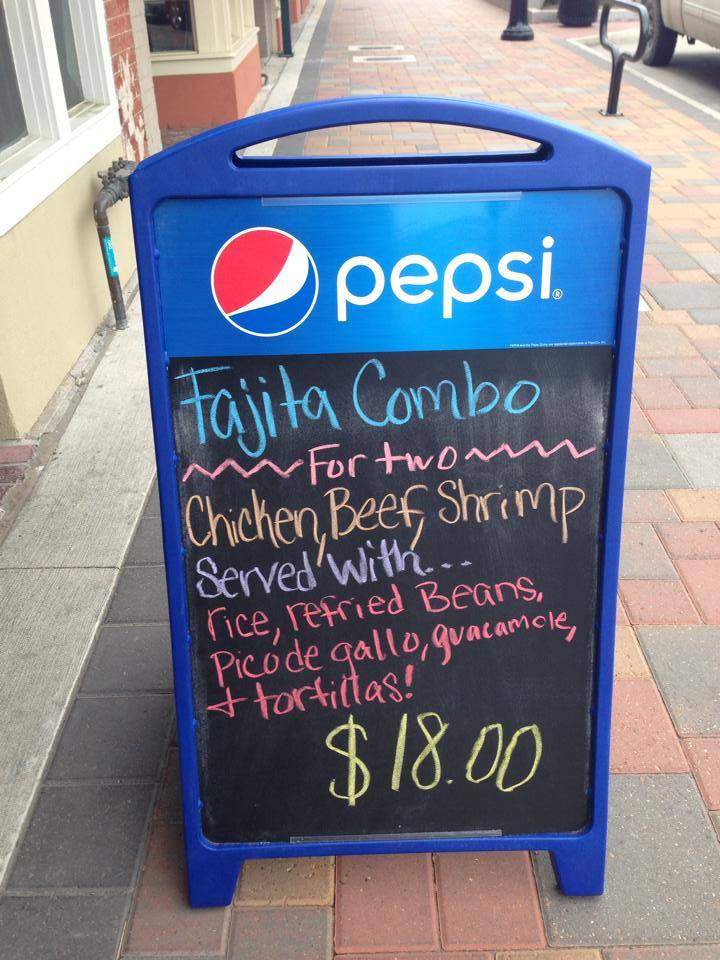 pepsi®
Fajita Combo
For two
Chicken, Beef, Shrimp
Served With...
rice, refried Beans,
Pico de gallo, guacamole,
+ tortillas!
$18.00